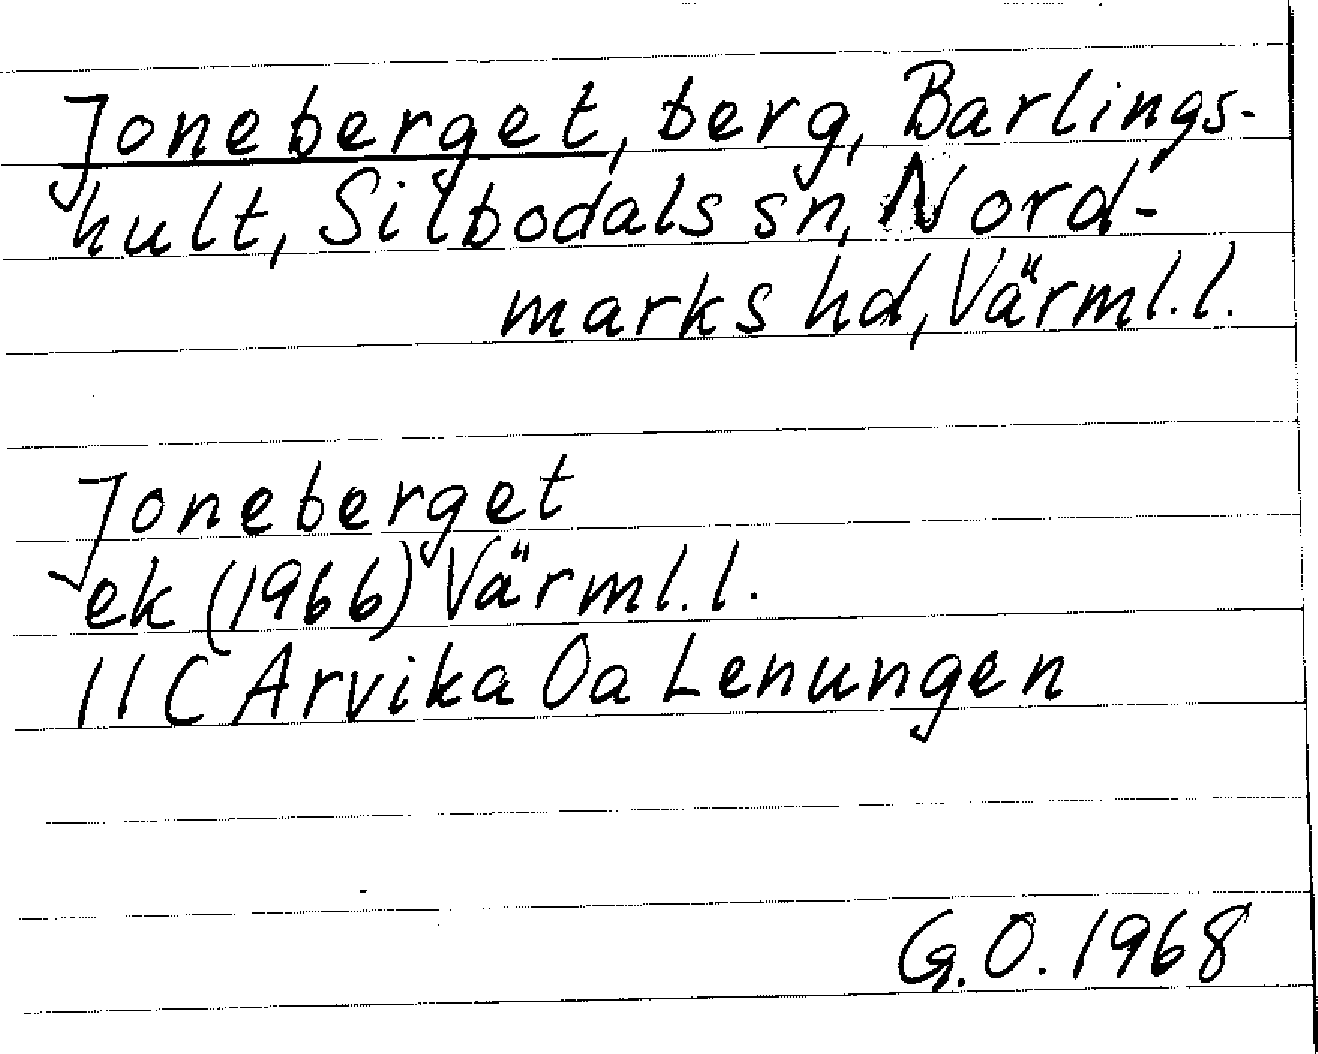 Joneberget, berg, Barlings-
hult, Silbodals sn, Nord-
marks hd, Värml.l.
Joneberget
ek (1966) Värml.l.
11 C Arvika 0a Lenungen
G.O. 1968